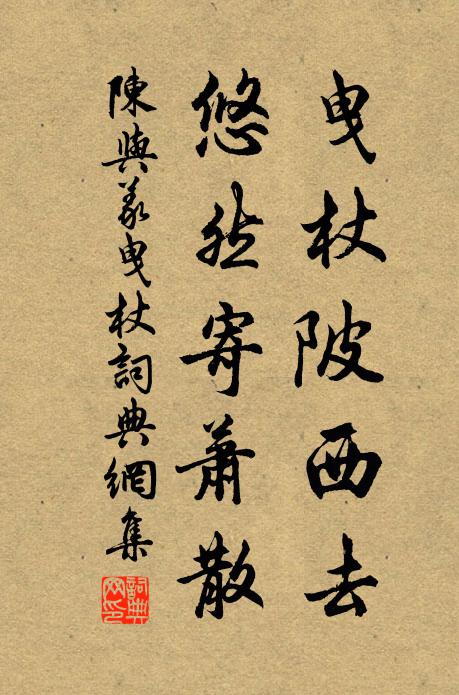 曳杖陂西去
悠然寄蕭散
陳與義曳杖詞典網集
詞典網印